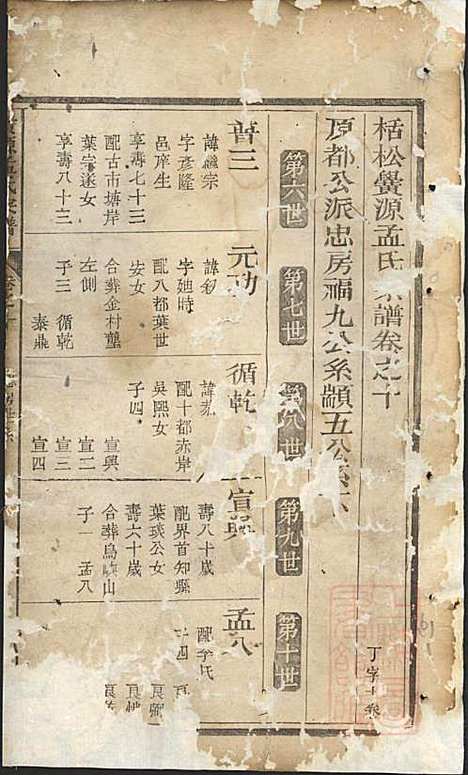 栝松黌源孟氏宗譜卷之十
丁字十卷
原都公派忠房福九公系顓五公
第六世
第七世
第八世
第九世
第十世
普三
諱繼宗
字彥隆
邑庠生
享壽七十三
配古市塘岸
葉宗遂女
享壽八十三
元功
字廸時
配八都葉世
安女
合葬金村壟
左側
子三 循乾
泰鼎
循乾
配十都赤岸
吳熙女
子四
宣興
宣二
宣三
宣四
宣興
壽八十歲
配界首知縣
葉琰公女
壽六十歲
合葬烏 山
子一 孟八
孟八
配李氏
子四